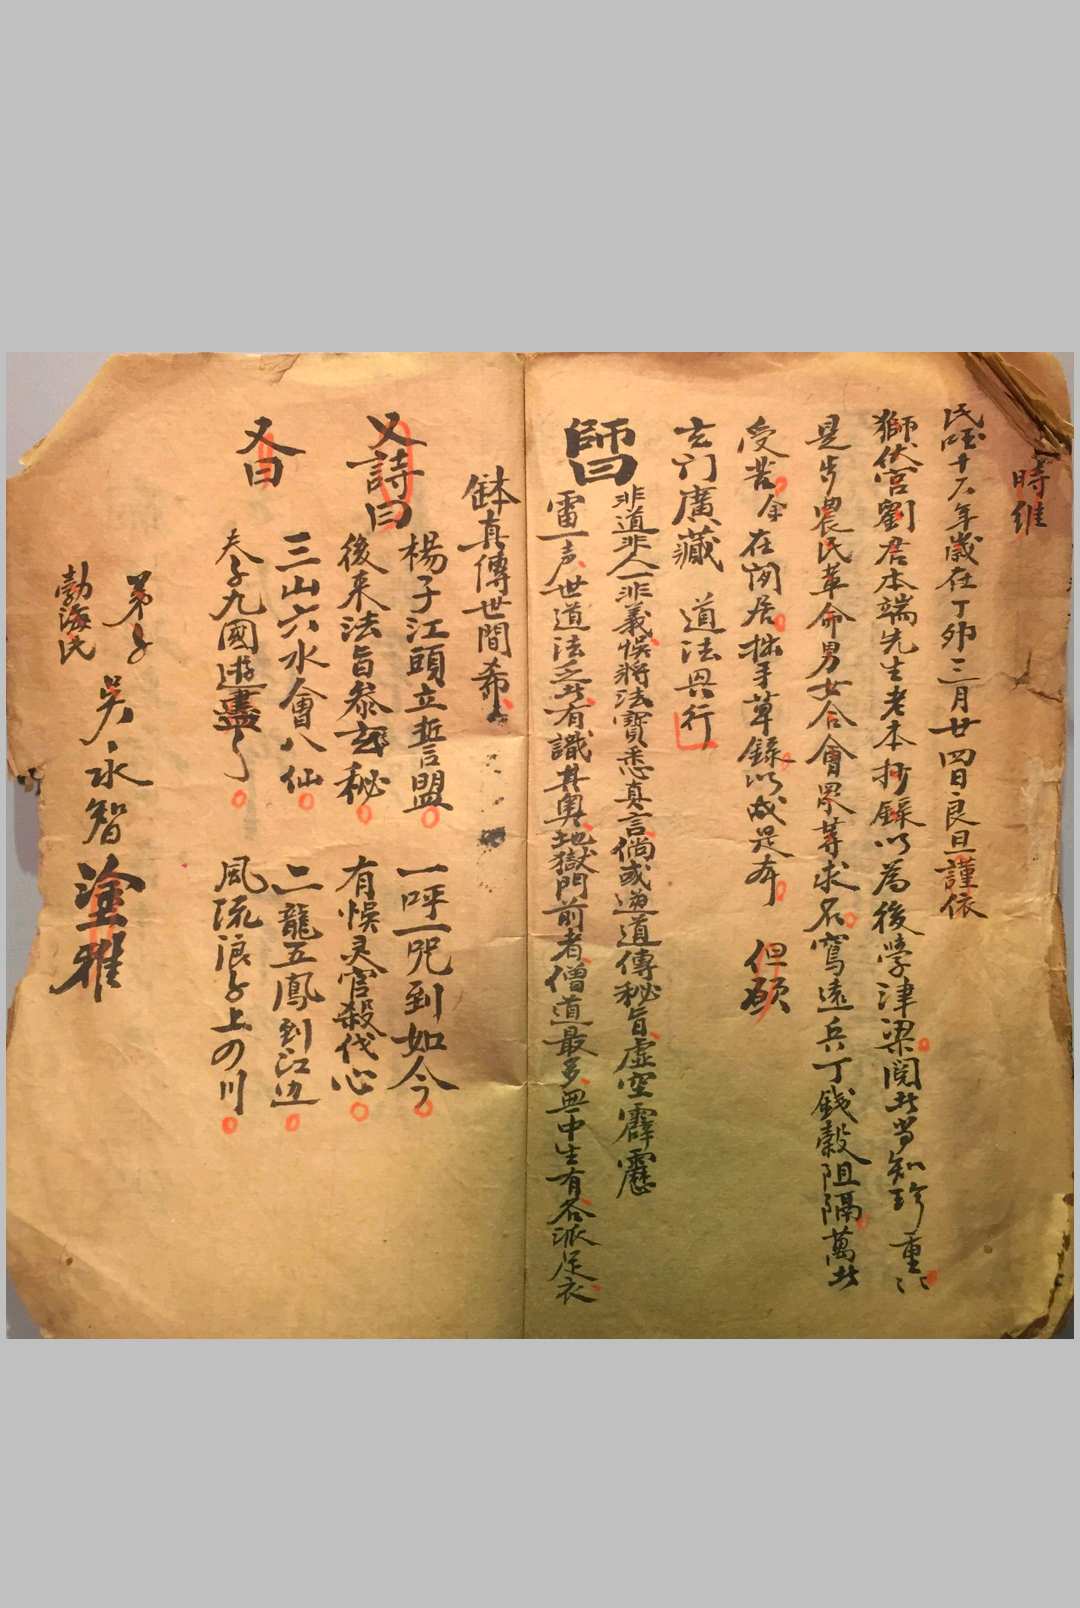 時維
民國十六年歲在丁卯三月廿四日良旦謹依
獅伏宮劉君本端先生老本抄錄以為後學津梁閱此當知珍重
是步農民革命男女合會眾等求名寫遠兵丁錢穀阻隔萬此
受苦今在閑居拙手草錄以成是本 但願
玄门廣藏 道法興行
師曰 非道非人非義悞將法寶悉真言倘或遇道傳秘旨虛空霹靂
雷一声世道法乏此有識其奧地獄門前者僧道最多無中生有各派足衣
鉢真傳世間希
又詩曰 楊子江頭立誓盟 一呼一咒到如今
後来法旨叅玄秘 有悞灵官殺伐心
又曰 三山六水會八仙 二龍五鳳到江边
叁子九國遊盡了 風流浪子上四川
弟子 吳永智 塗雅
勃海氏